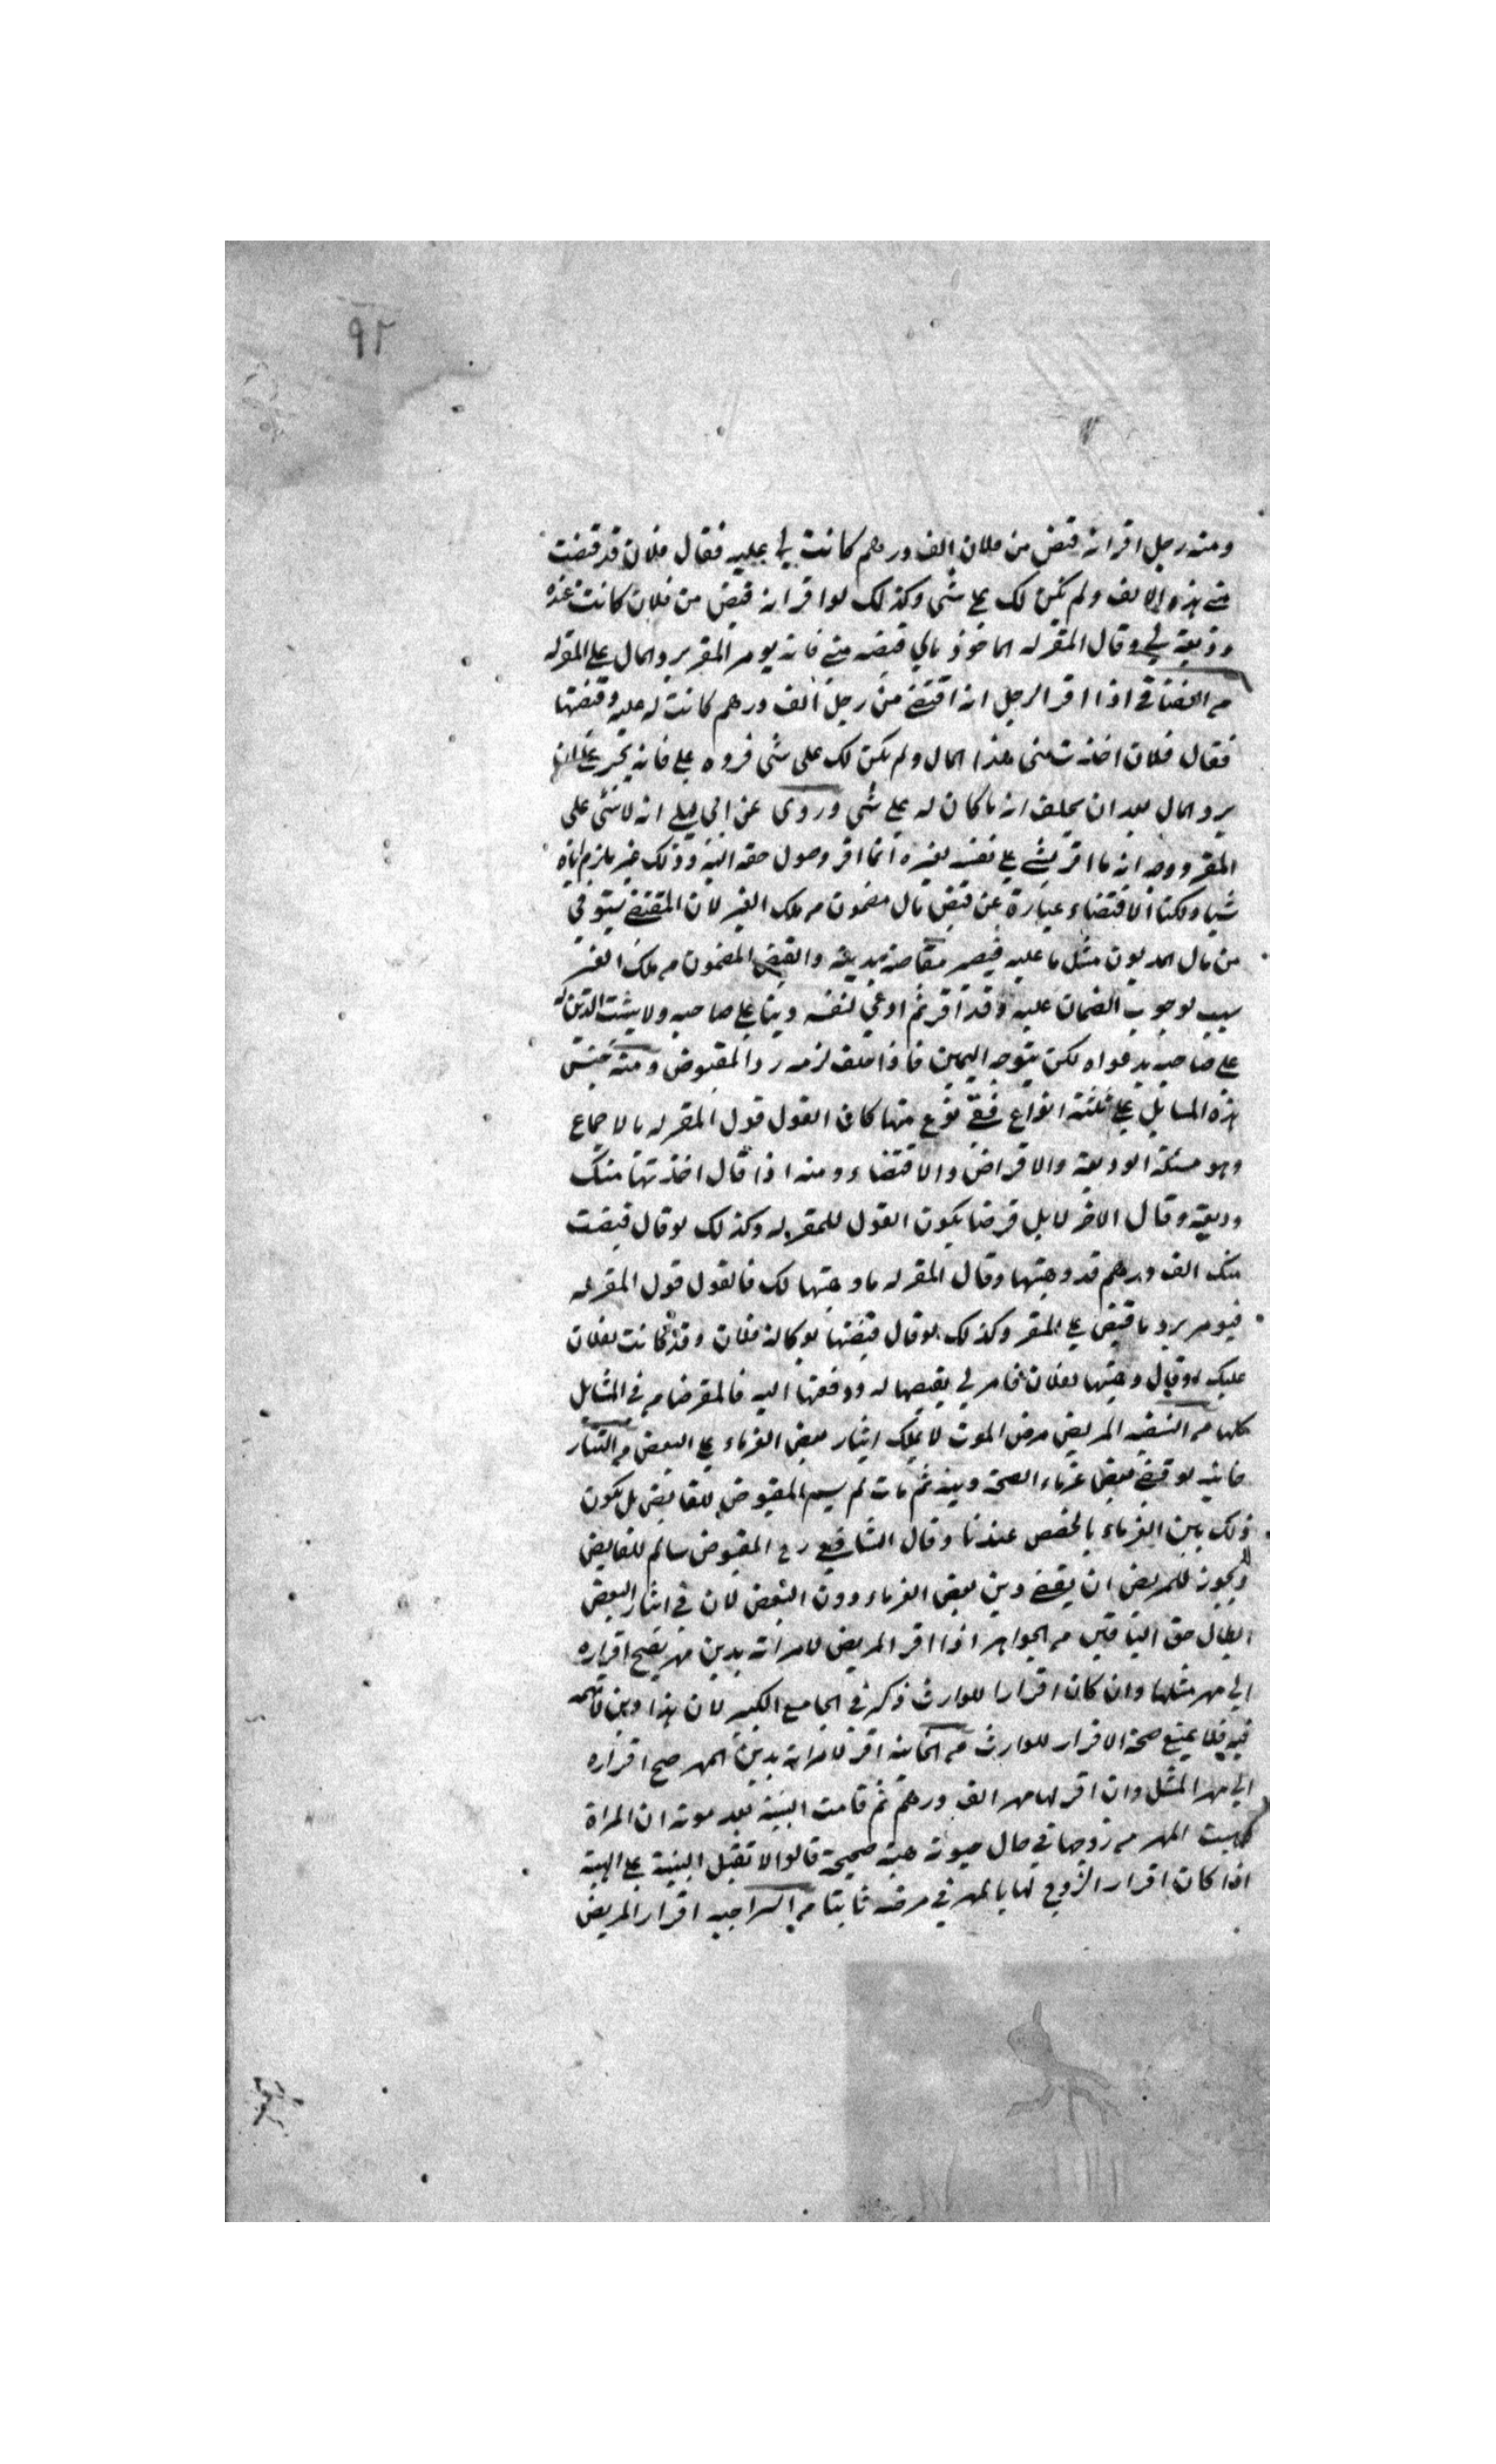 ٩٢
ومنه رجل اقر انه قبض من فلان الف درهم كانت لي عليه فقال فلان قد قبضت
مني هذه الالف ولم يكن لك علي شي وكذلك لو اقر انه قبض من فلان كانت عنده
وديعة لي وقال المقر له الماخوذ مالي قبضه مني فانه يومر المقر برد المال على المقر له
م اذا اقر الرجل انه اقتضى من رجل الف درهم كانت له عليه وقبضها
فقال فلان اخذت مني هذا المال ولم يكن لك على شي فرده علي فانه يجبر على ان
يرد المال بعد ان يحلف انه ما كان له علي شي وروى عن ابي ليلى انه لا شي على
المقر ووجه انه ما اقر بشي على نفسه لغيره انما اقر وصول حقه اليه وذلك غير ملزم اياه
شيا ولكنا الاقتضاء عبارة عن قبض مال مضمون م ملك الغير لان المقتضي يستوفي
من مال المديون مثل ما عليه فيصير مقاصة بدينه والقبض المضمون م ملك الغير
سبب لوجوب الضمان عليه وقد اقر ثم ادعي لنفسه دينا على صاحبه ولا يثبت الدين له
على صاحبه بدعواه لكن يتوجه اليمين فاذا حلف لزمه رد المقبوض ومنه جنس
هذه المسايل على ثلثة انواع ففي نوع منها كان القول قول المقر له بالاجماع
وهو مسئلة الوديعة والاقراض والاقتضاء ومنه اذا قال اخذتها منك
وديعة وقال الاخر لا بل قرضا يكون القول للمقر له وكذلك لو قال قبضت
منك الف درهم قد وهبتها وقال المقر له ما وهبتها لك فالقول قول المقر له
فيومر برد ما قبض على المقر وكذلك لو قال قبضتها بوكالة فلان وقد كانت لفلان
عليك او قال وهبتها لفلان فامر لي بقبضها له ودفعتها اليه فالمقر ضامن في المسايل
كلها م المريض مرض الموت لا يملك ايثار بعض الغرماء على البعض م
لو قضى بعض غرماء الصحة دينه ثم مات لم يسلم المقبوض للقابض بل يكون
ذلك بين الغرماء بالحصص عندنا وقال الشافعي رح المقبوض سالم للقابض
لا يجوز للمريض ان يقضى دين بعض الغرماء دون البعض لان في ايثار البعض
ابطال حق الباقين م الجواهر اذا اقر المريض لامراته بدين مهر يصح اقراره
الي مهر مثلها وان كان اقرارا للوارث ذكره في الجامع الكبير لان هذا دين لا تهمه
فيه فلا يمنع صحة الاقرار للوارث م الخانيه اقر لامراته بدين المهر صح اقراره
الي مهر المثل وان اقر لها مهر الف درهم ثم قامت البينة بعد موته ان المراة
وهبت المهر م زوجها في حال حيوته هبة صحيحة قالوا لا تقبل البينة على الهبة
اذا كان اقرار الزوج لها بالمهر في مرضه ثابتا م السراجيه اقرار المريض